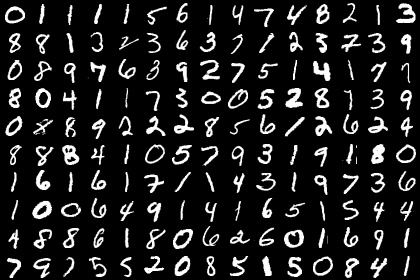 0 1 1 1 1 5 6 1 4 7 4 8 2 1 3
8 8 1 3 2 3 6 3 7 1 2 3 7 3 9
0 8 9 7 6 3 9 2 7 5 1 4 1 7 7
8 0 4 1 1 7 3 0 0 5 2 8 7 3 9
0 8 8 9 2 2 2 8 5 6 1 2 6 2 4
8 8 8 4 1 0 5 7 9 3 1 9 1 8 0
1 6 1 6 1 7 1 1 4 3 1 9 7 3 6
1 0 0 6 4 9 1 4 1 6 5 1 5 4 4
4 8 8 6 1 8 0 6 2 6 0 1 6 9 1
7 9 2 5 5 2 0 8 5 1 5 0 8 4 1